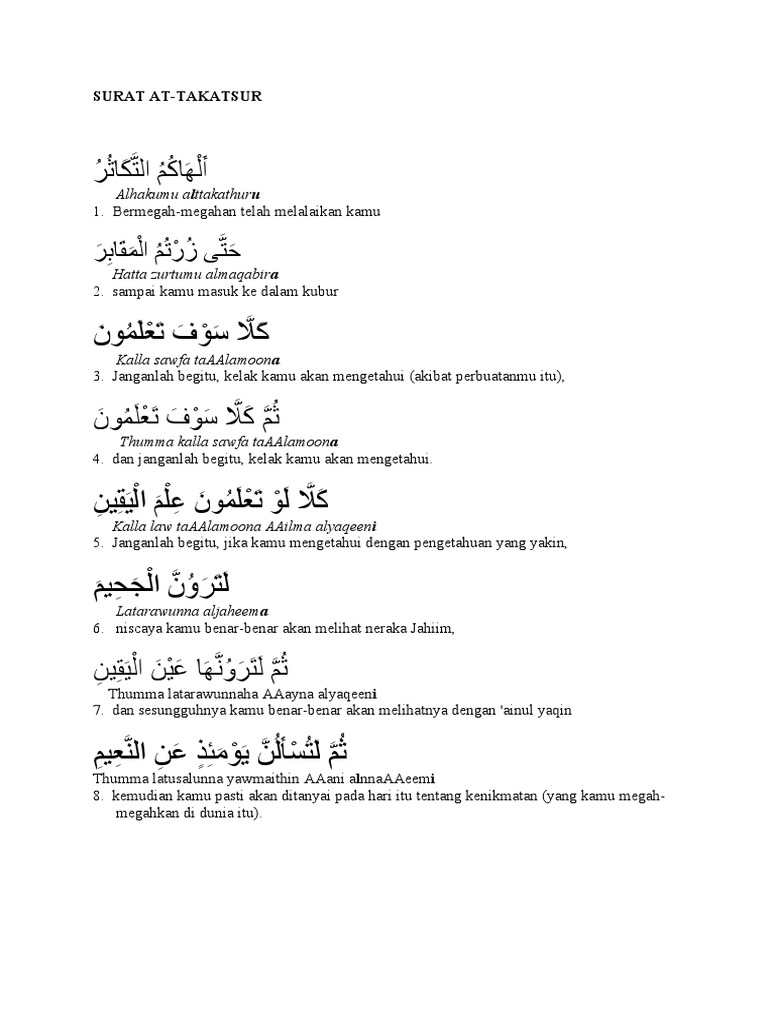 SURAT AT-TAKATSUR
أَلْهَاكُمُ التَّكَاثُرُ
Alhakumu alttakathuru
1. Bermegah-megahan telah melalaikan kamu
حَتَّى زُرْتُمُ الْمَقَابِرَ
Hatta zurtumu almaqabira
2. sampai kamu masuk ke dalam kubur
كَلَّا سَوْفَ تَعْلَمُونَ
Kalla sawfa taAAlamoona
3. Janganlah begitu, kelak kamu akan mengetahui (akibat perbuatanmu itu),
ثُمَّ كَلَّا سَوْفَ تَعْلَمُونَ
Thumma kalla sawfa taAAlamoona
4. dan janganlah begitu, kelak kamu akan mengetahui.
كَلَّا لَوْ تَعْلَمُونَ عِلْمَ الْيَقِينِ
Kalla law taAAlamoona AAilma alyaqeeni
5. Janganlah begitu, jika kamu mengetahui dengan pengetahuan yang yakin,
لَتَرَوُنَّ الْجَحِيمَ
Latarawunna aljaheema
6. niscaya kamu benar-benar akan melihat neraka Jahiim,
ثُمَّ لَتَرَوُنَّهَا عَيْنَ الْيَقِينِ
Thumma latarawunnaha AAayna alyaqeeni
7. dan sesungguhnya kamu benar-benar akan melihatnya dengan 'ainul yaqin
ثُمَّ لَتُسْأَلُنَّ يَوْمَئِذٍ عَنِ النَّعِيمِ
Thumma latusalunna yawmaithin AAani alnnaAAeemi
8. kemudian kamu pasti akan ditanyai pada hari itu tentang kenikmatan (yang kamu megah-
megahkan di dunia itu).